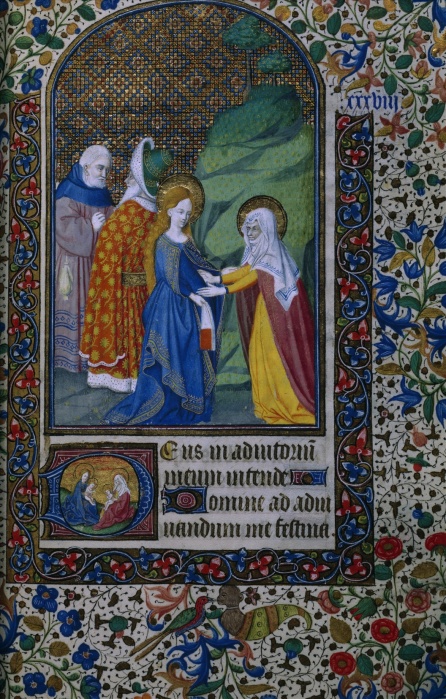 xxxviij
Deus in adiutoriū
meum intende
Domine ad adiu
uandum me festina